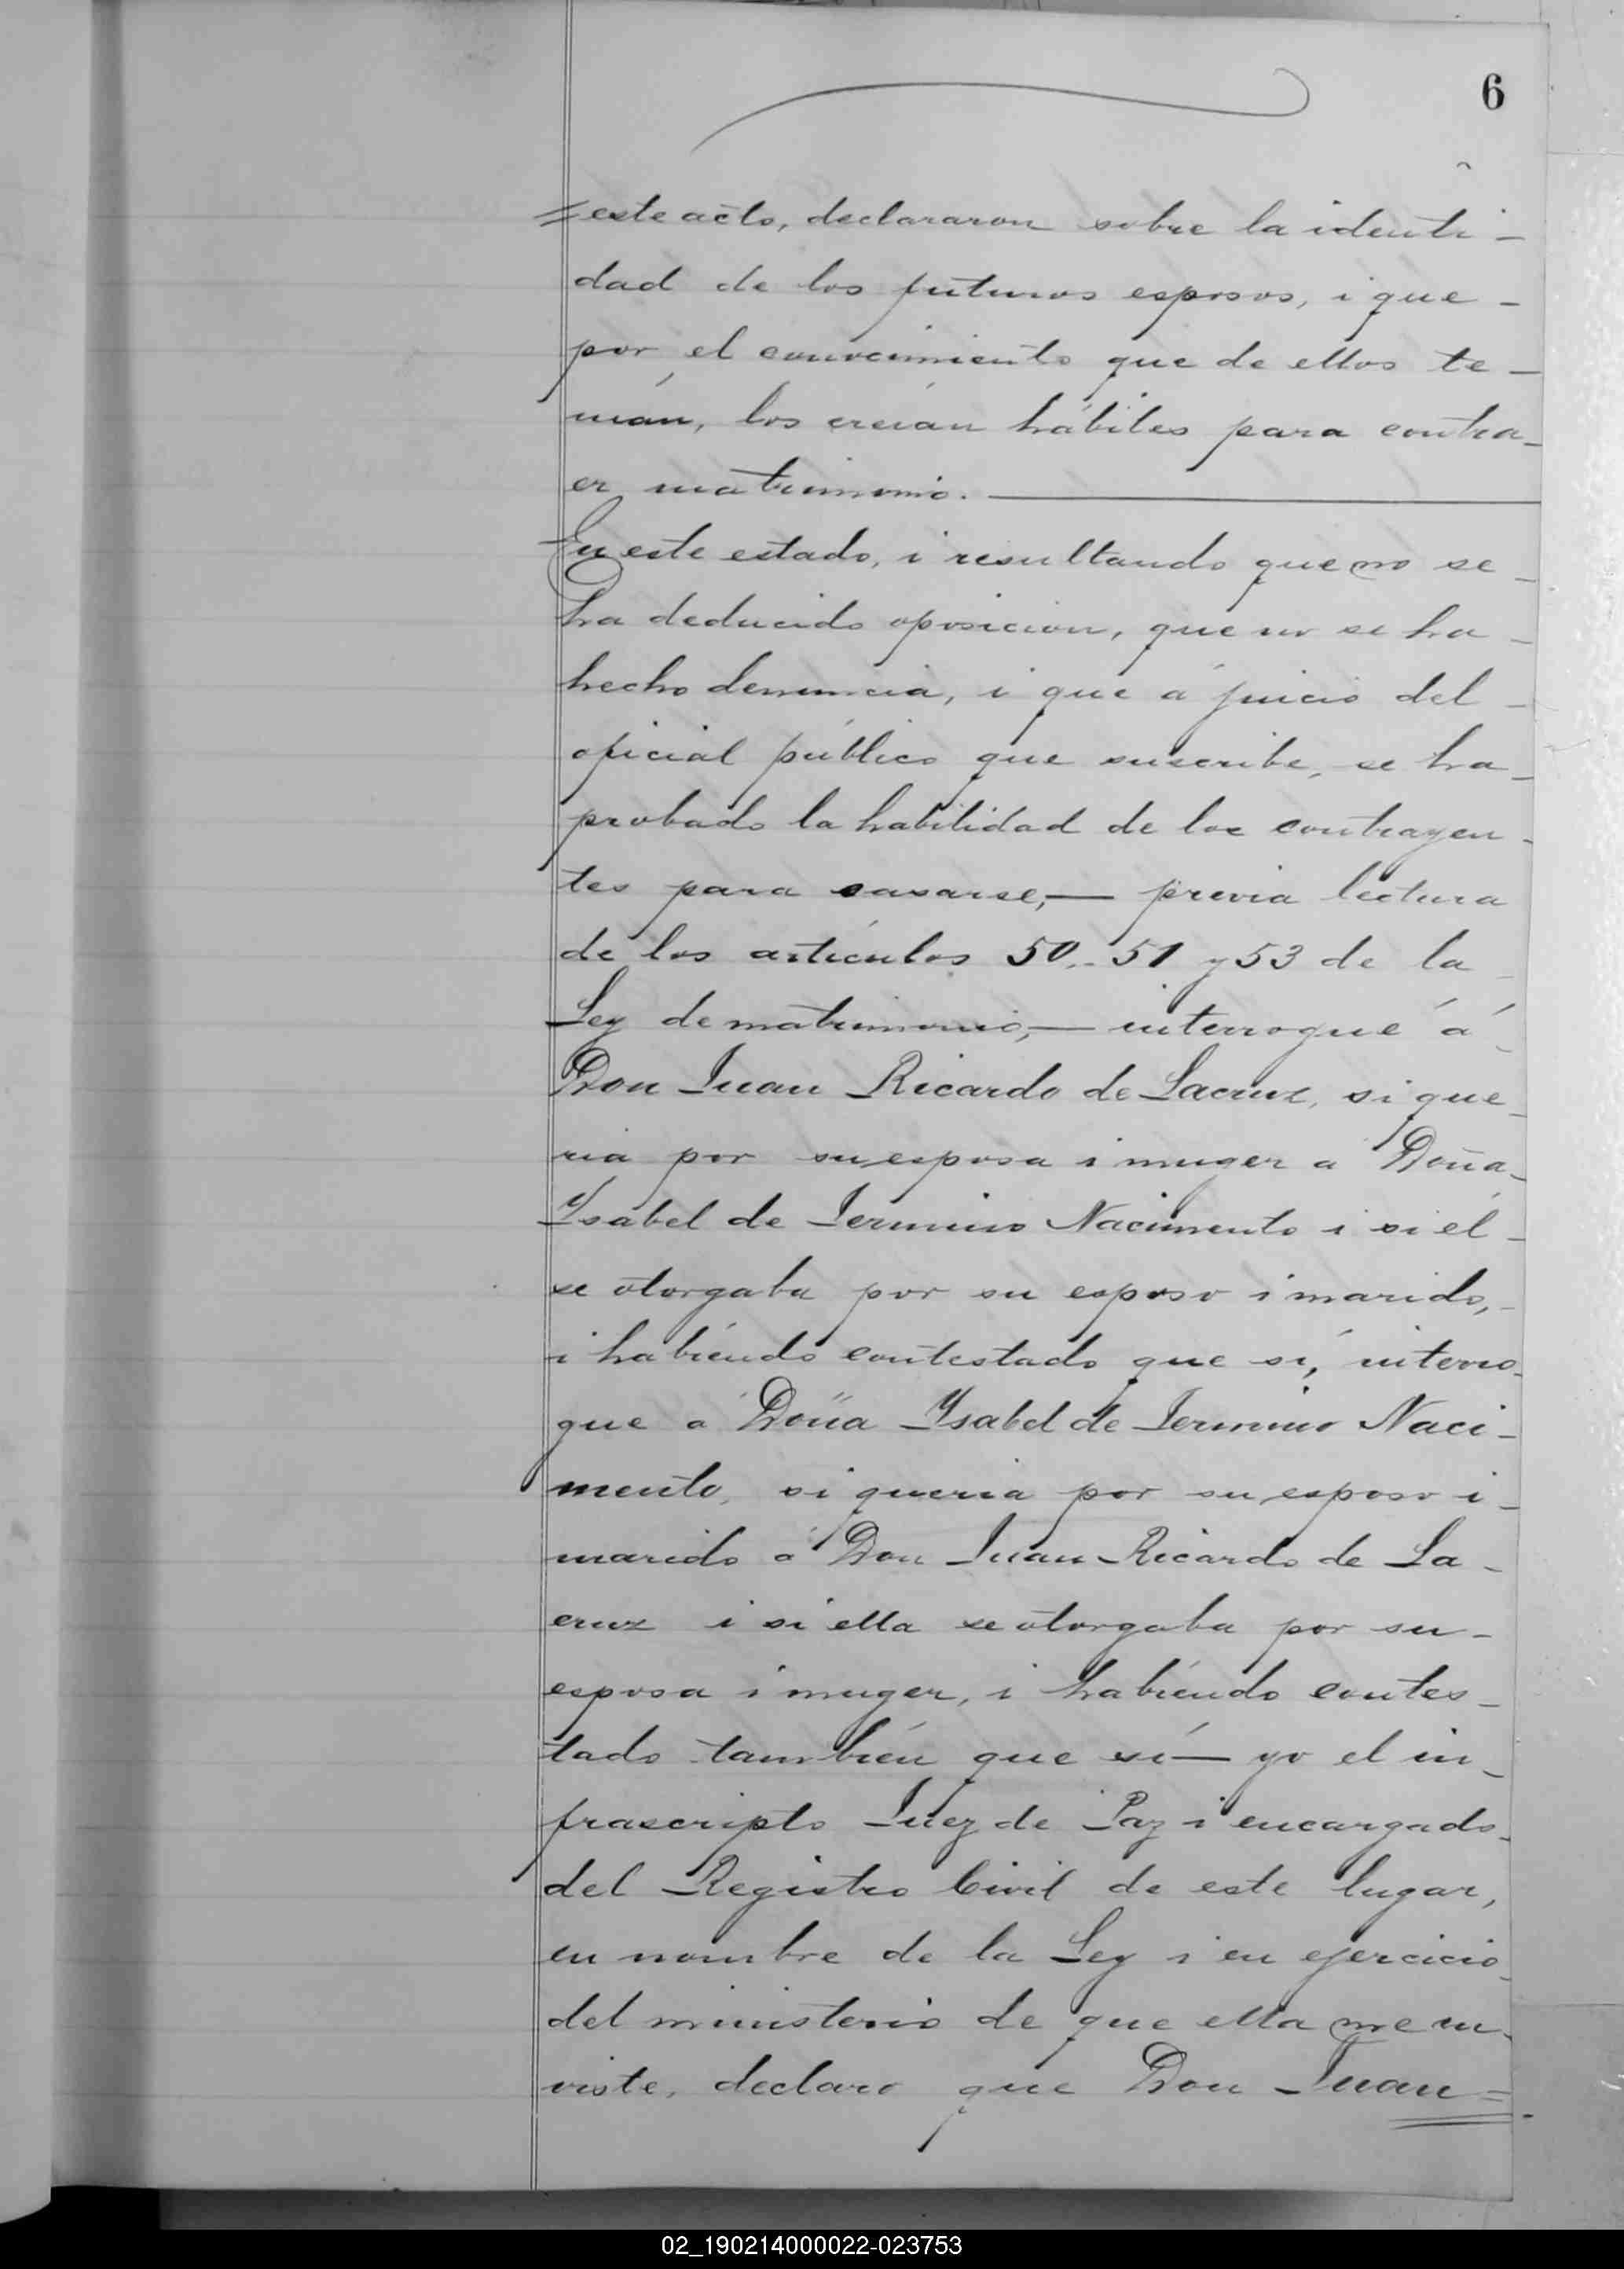 6
=este acto, declararon sobre la identi-
dad de los futuros esposos, i que-
por el conocimiento que de ellos te-
nían, los creían hábiles para contra-
er matrimonio.
En este estado, i resultando que no se-
ha deducido oposicion, que no se ha-
hecho denuncia, i que á juicio del-
oficial público que suscribe, se ha-
probado la habilidad de los contrayen-
tes para casarse,— previa lectura
de los artículos 50,. 51 y 53 de la
Ley de matrimonio,— interrogué á
Don Juan Ricardo de Lacruz, si que-
ria por su esposa i muger a Doña-
Ysabel de Nacimento i si él-
se otorgaba por su esposo i marido,-
i habiendo contestado que sí, interro-
gue á Doña Ysabel de Naci-
mento, si queria por su esposo i-
marido á Don Juan Ricardo de La-
cruz i si ella se otorgaba por su-
esposa i muger, i habiendo contes-
tado también que sí— yo el in-
frascripto Juez de Paz i encargado-
del Registro Civil de este lugar,
en nombre de la Ley i en ejercicio
del ministerio de que ella me in-
viste, declaro que Don Juan=
02_190214000022-023753